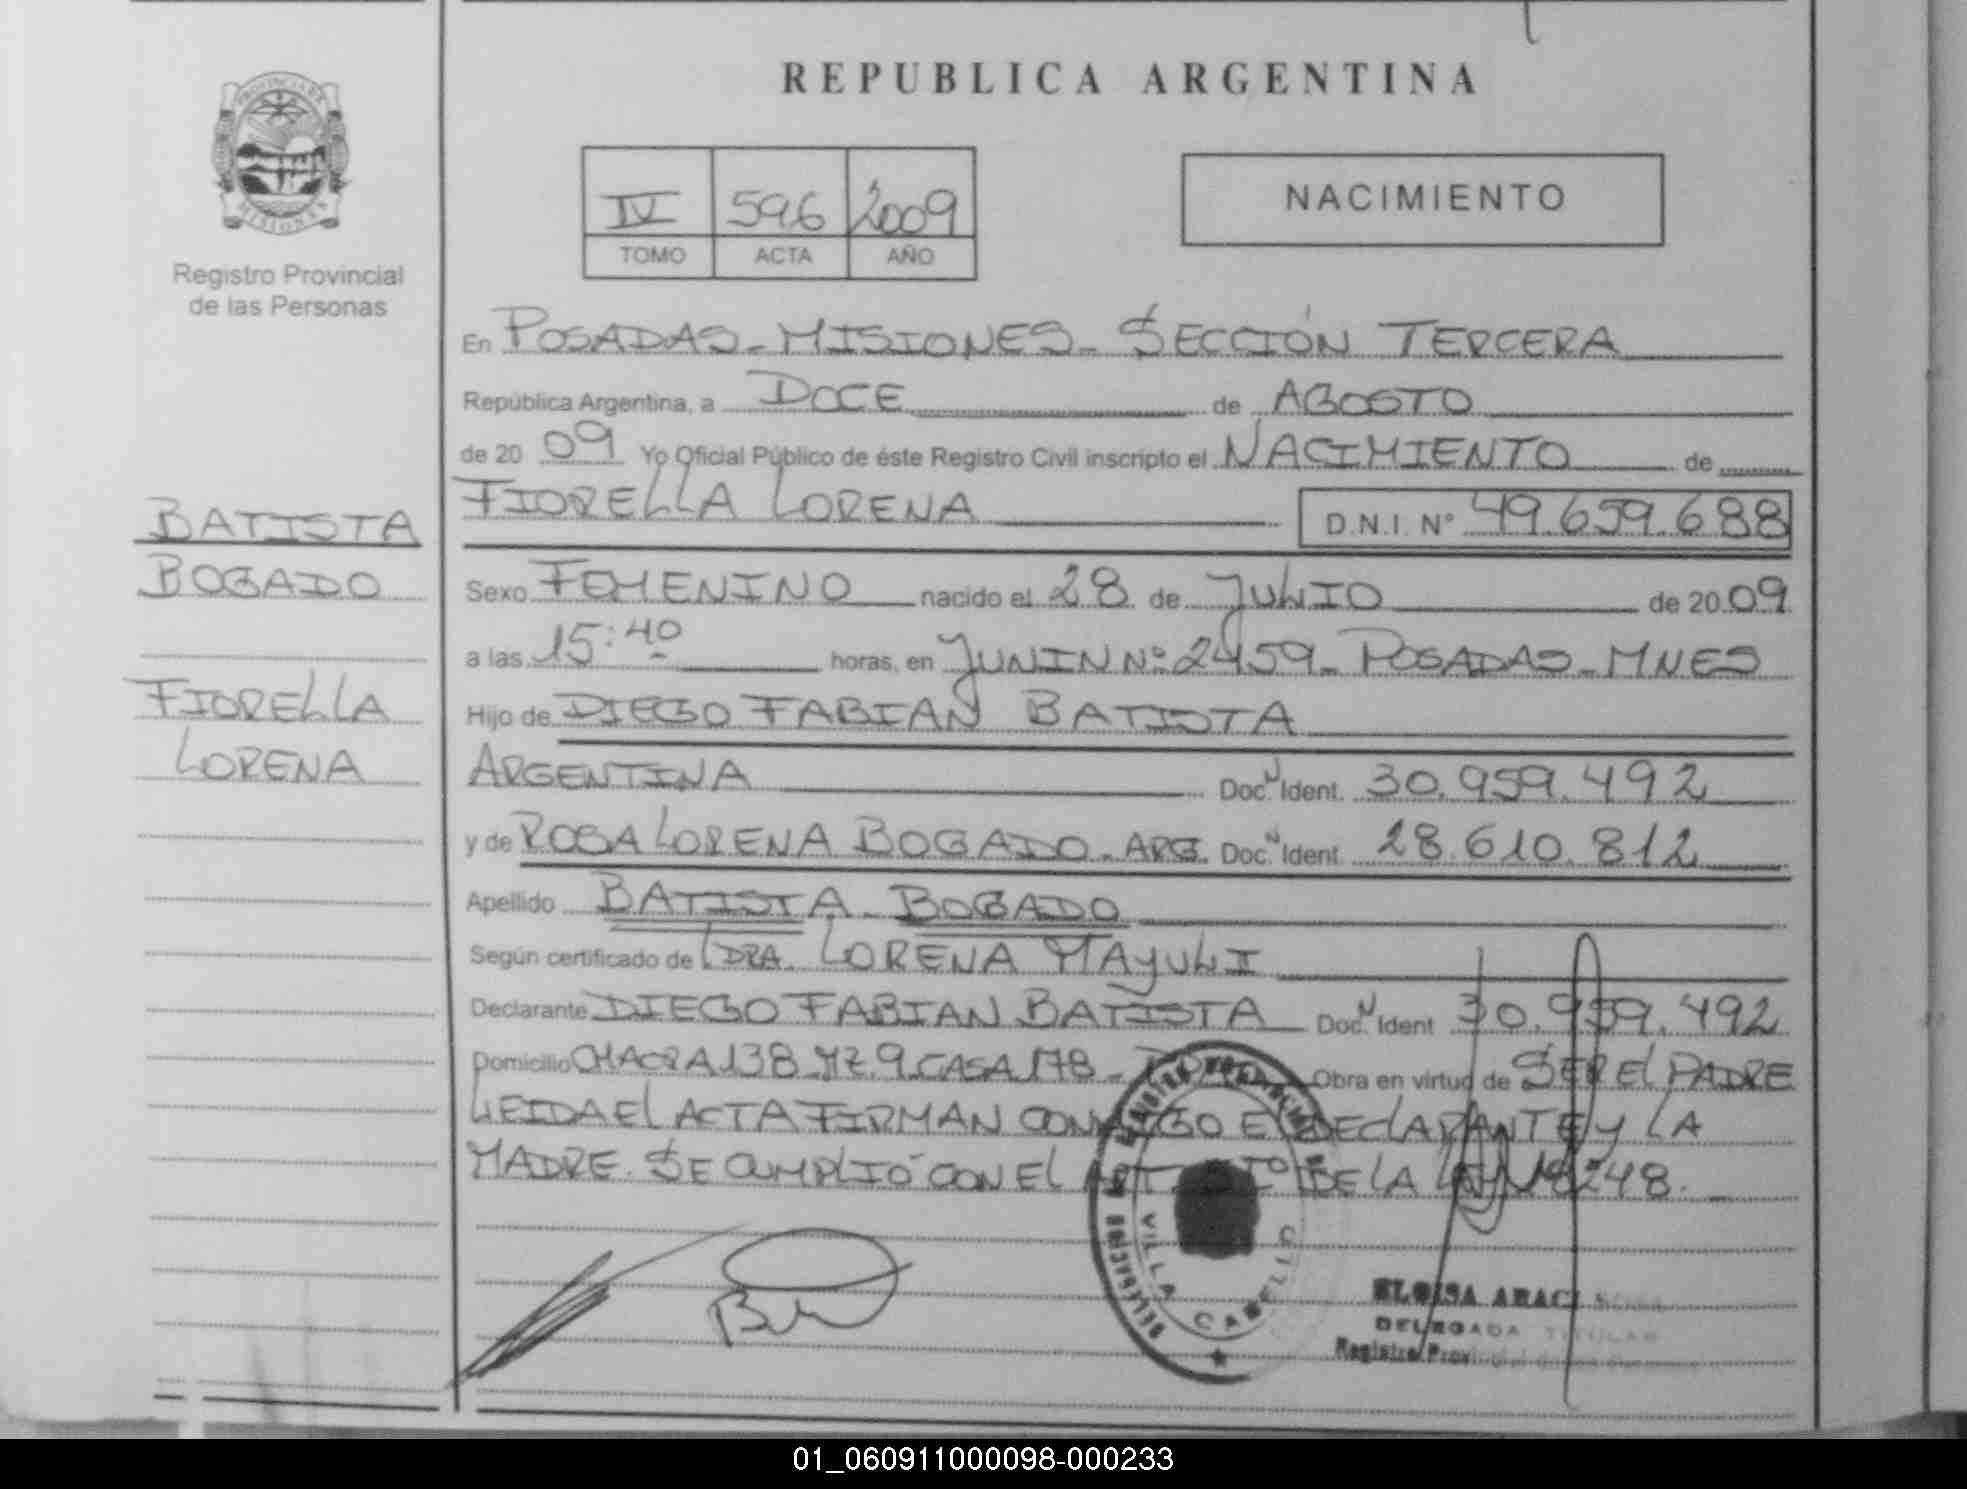 REPUBLICA ARGENTINA
PROVINCIA DE
MISIONES
Registro Provincial
de las Personas
IV 596 2009
TOMO ACTA AÑO
NACIMIENTO
En POSADAS - MISIONES - SECCIÓN TERCERA
República Argentina, a DOCE de AGOSTO
de 20 09 Yo Oficial Público de éste Registro Civil inscripto el NACIMIENTO de
FIORELLA LORENA D.N.I. Nº 49.659.688
BATISTA
BOGADO
FIORELLA
LORENA
Sexo FEMENINO nacido el 28 de JULIO de 20 09
a las 15:40 horas, en JUNIN Nº 2459 - POSADAS - MNES
Hijo de DIEGO FABIAN BATISTA
ARGENTINA Doc. N Ident. 30.959.492
y de ROSA LORENA BOGADO - ARG. Doc. N Ident 28.610.812
Apellido BATISTA - BOGADO
Según certificado de DRA. LORENA MAYULI
Declarante DIEGO FABIAN BATISTA Doc. N Ident 30.959.492
Domicilio CHACRA 138 - MZ. 9 - CASA 178 - Obra en virtud de SER EL PADRE
LEIDA EL ACTA FIRMAN CONMIGO EL DECLARANTE Y LA
MADRE. SE CUMPLIÓ CON EL ART. DE LA LEY 18248.
DELEGACION
VILLA CABELLO
ELOISA ARACI
DELEGADA TITULAR
Registro Provincial
01_060911000098-000233